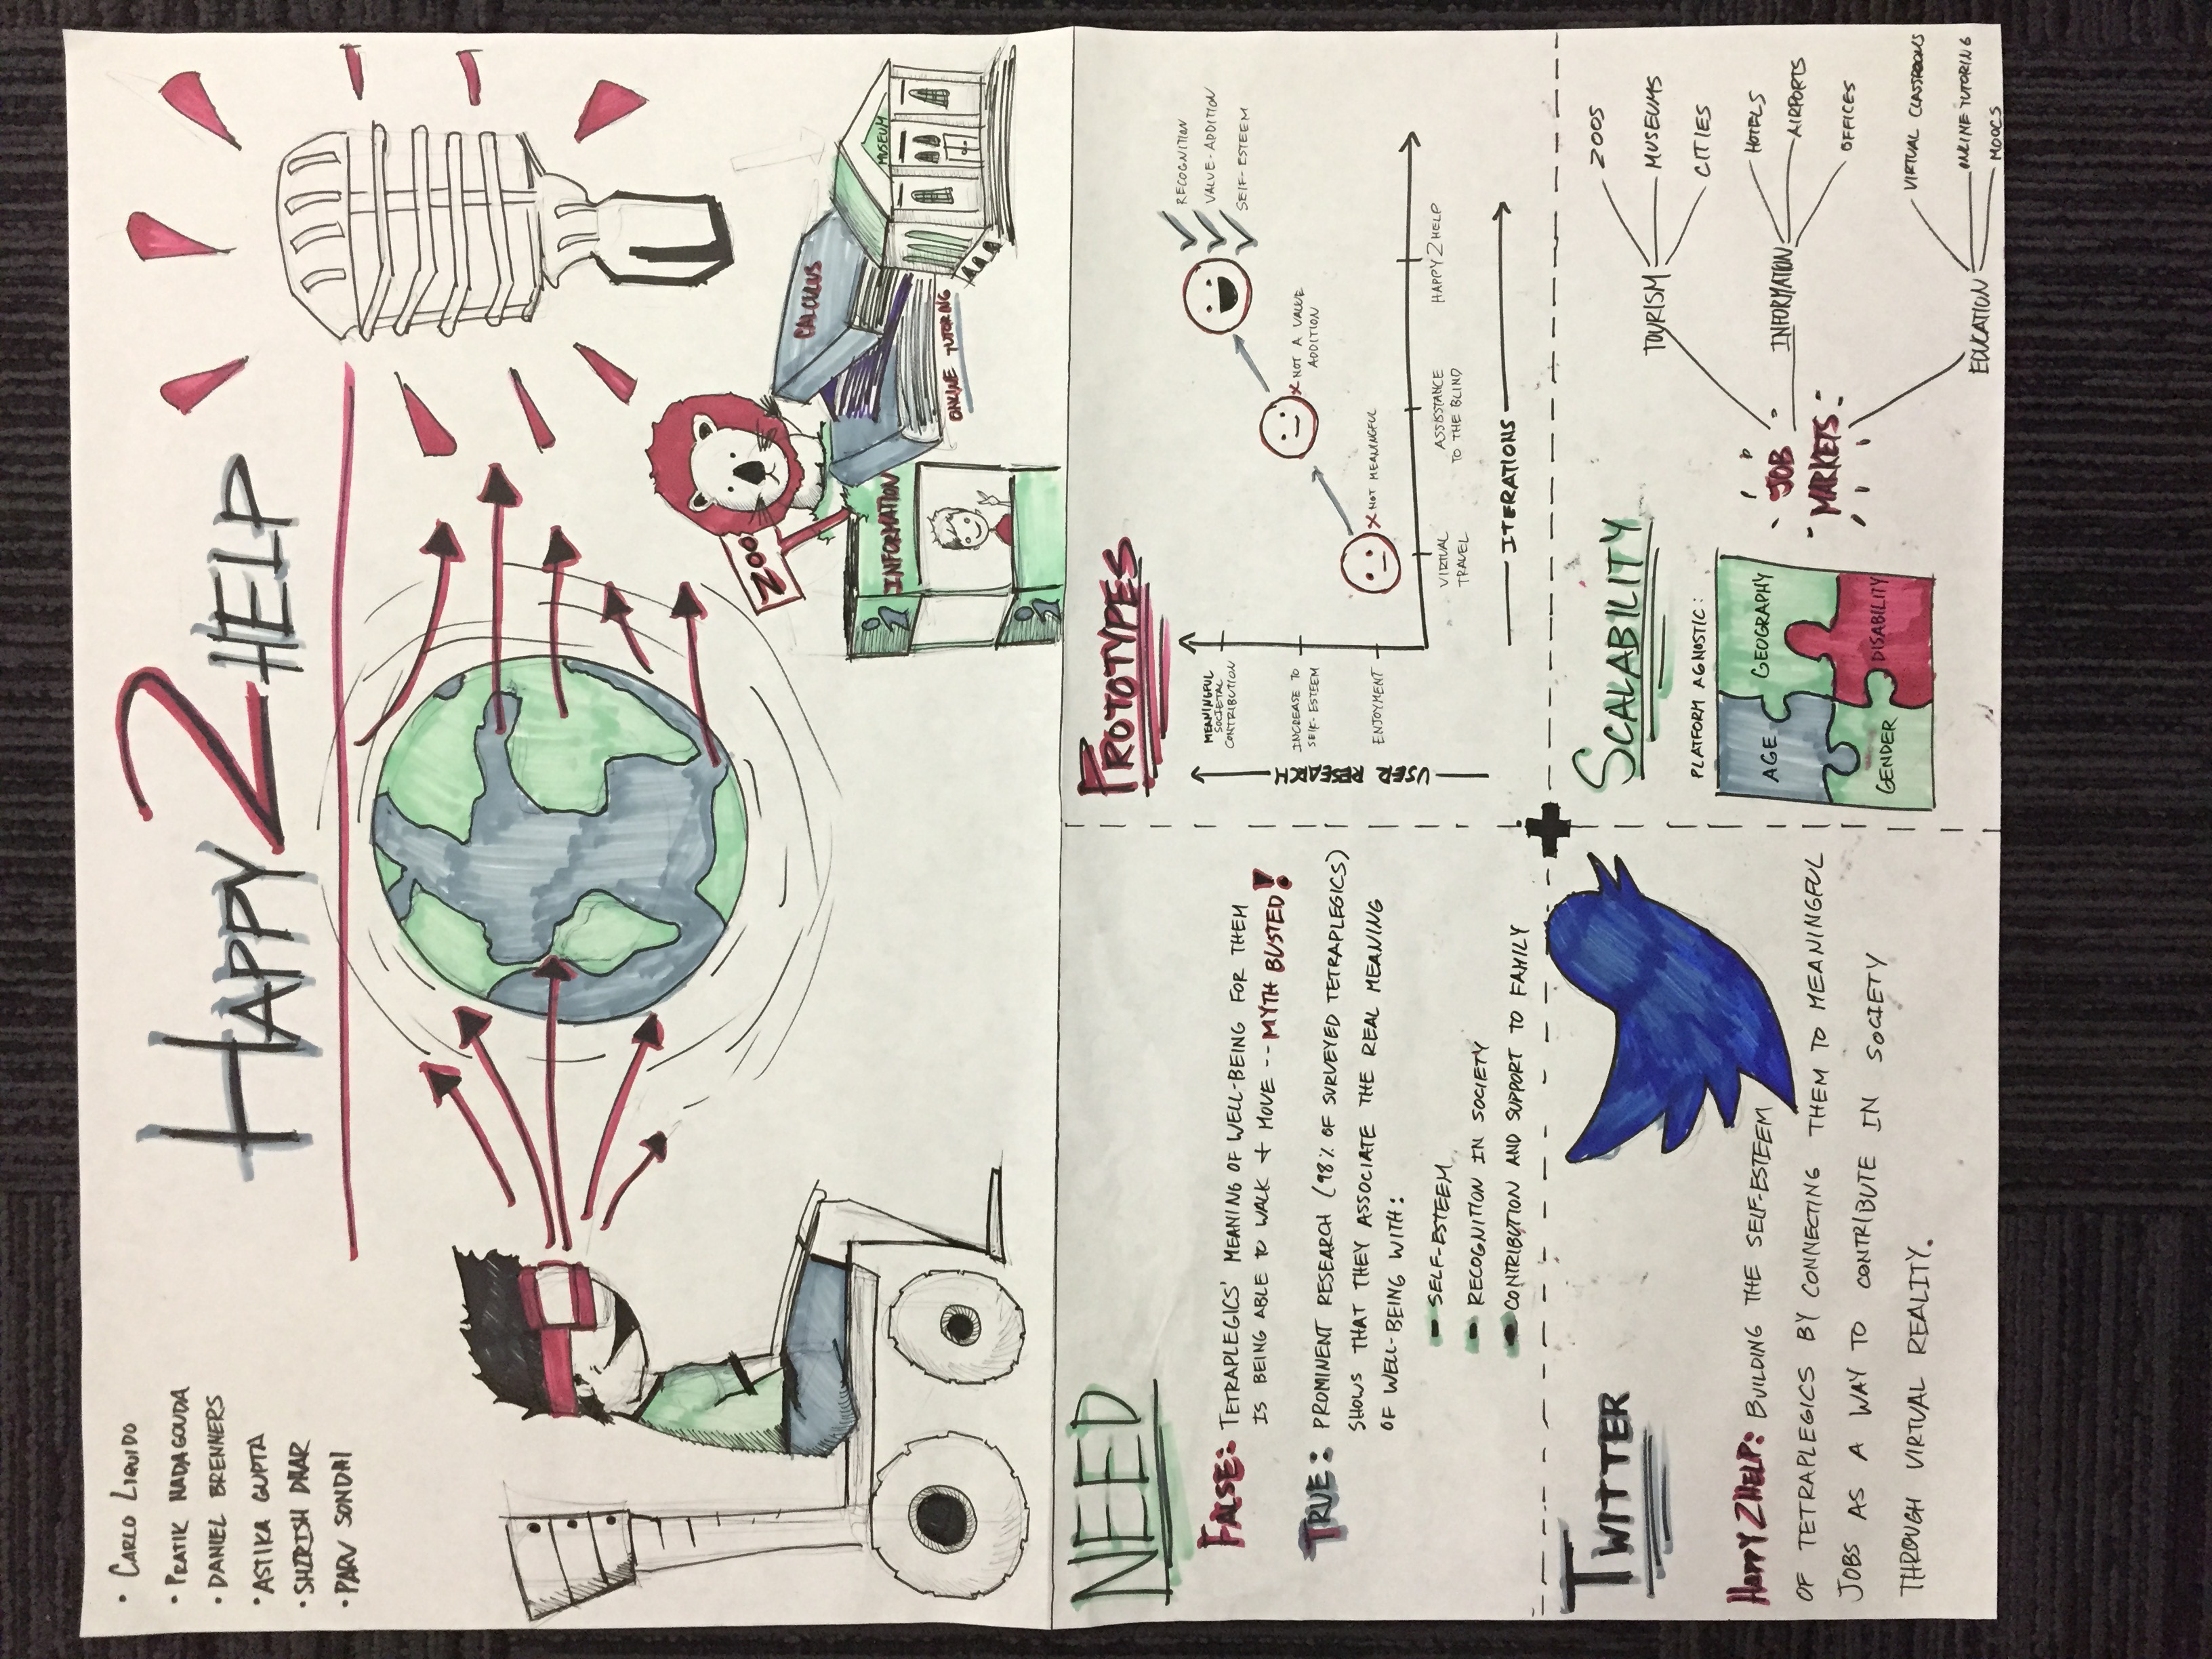 • CARLO LIQUIDO
• PRATIK NADAGOUDA
• DANIEL BRENNERS
• ASTIKA GUPTA
• SHIRISH DHAR
• PARV SONDHI
HAPPY 2 HELP
ZOO
CALCULUS
INFORMATION
i
MUSEUM
ONLINE TUTORING
i
NEED
FALSE: TETRAPLEGICS' MEANING OF WELL-BEING FOR THEM
IS BEING ABLE TO WALK + MOVE -- MYTH BUSTED!
TRUE: PROMINENT RESEARCH (98% OF SURVEYED TETRAPLEGICS)
SHOWS THAT THEY ASSOCIATE THE REAL MEANING
OF WELL-BEING WITH:
- SELF-ESTEEM
- RECOGNITION IN SOCIETY
- CONTRIBUTION AND SUPPORT TO FAMILY
PROTOTYPES
USER RESEARCH
MEANINGFUL
SOCIETAL
CONTRIBUTION
INCREASE TO
SELF-ESTEEM
ENJOYMENT
RECOGNITION
VALUE-ADDITION
SELF-ESTEEM
X NOT A VALUE
ADDITION
X NOT MEANINGFUL
VIRTUAL
TRAVEL
ASSISSTANCE
TO THE BLIND
HAPPY2HELP
ITERATIONS
TWITTER
HAPPY2HELP: BUILDING THE SELF-ESTEEM
OF TETRAPLEGICS BY CONNECTING THEM TO MEANINGFUL
JOBS AS A WAY TO CONTRIBUTE IN SOCIETY
THROUGH VIRTUAL REALITY.
SCALABILITY
PLATFORM AGNOSTIC:
AGE
GEOGRAPHY
GENDER
DISABILITY
JOB
MARKETS
TOURISM
ZOOS
MUSEUMS
CITIES
INFORMATION
HOTELS
AIRPORTS
OFFICES
EDUCATION
VIRTUAL CLASSROOMS
ONLINE TUTORING
MOOCS